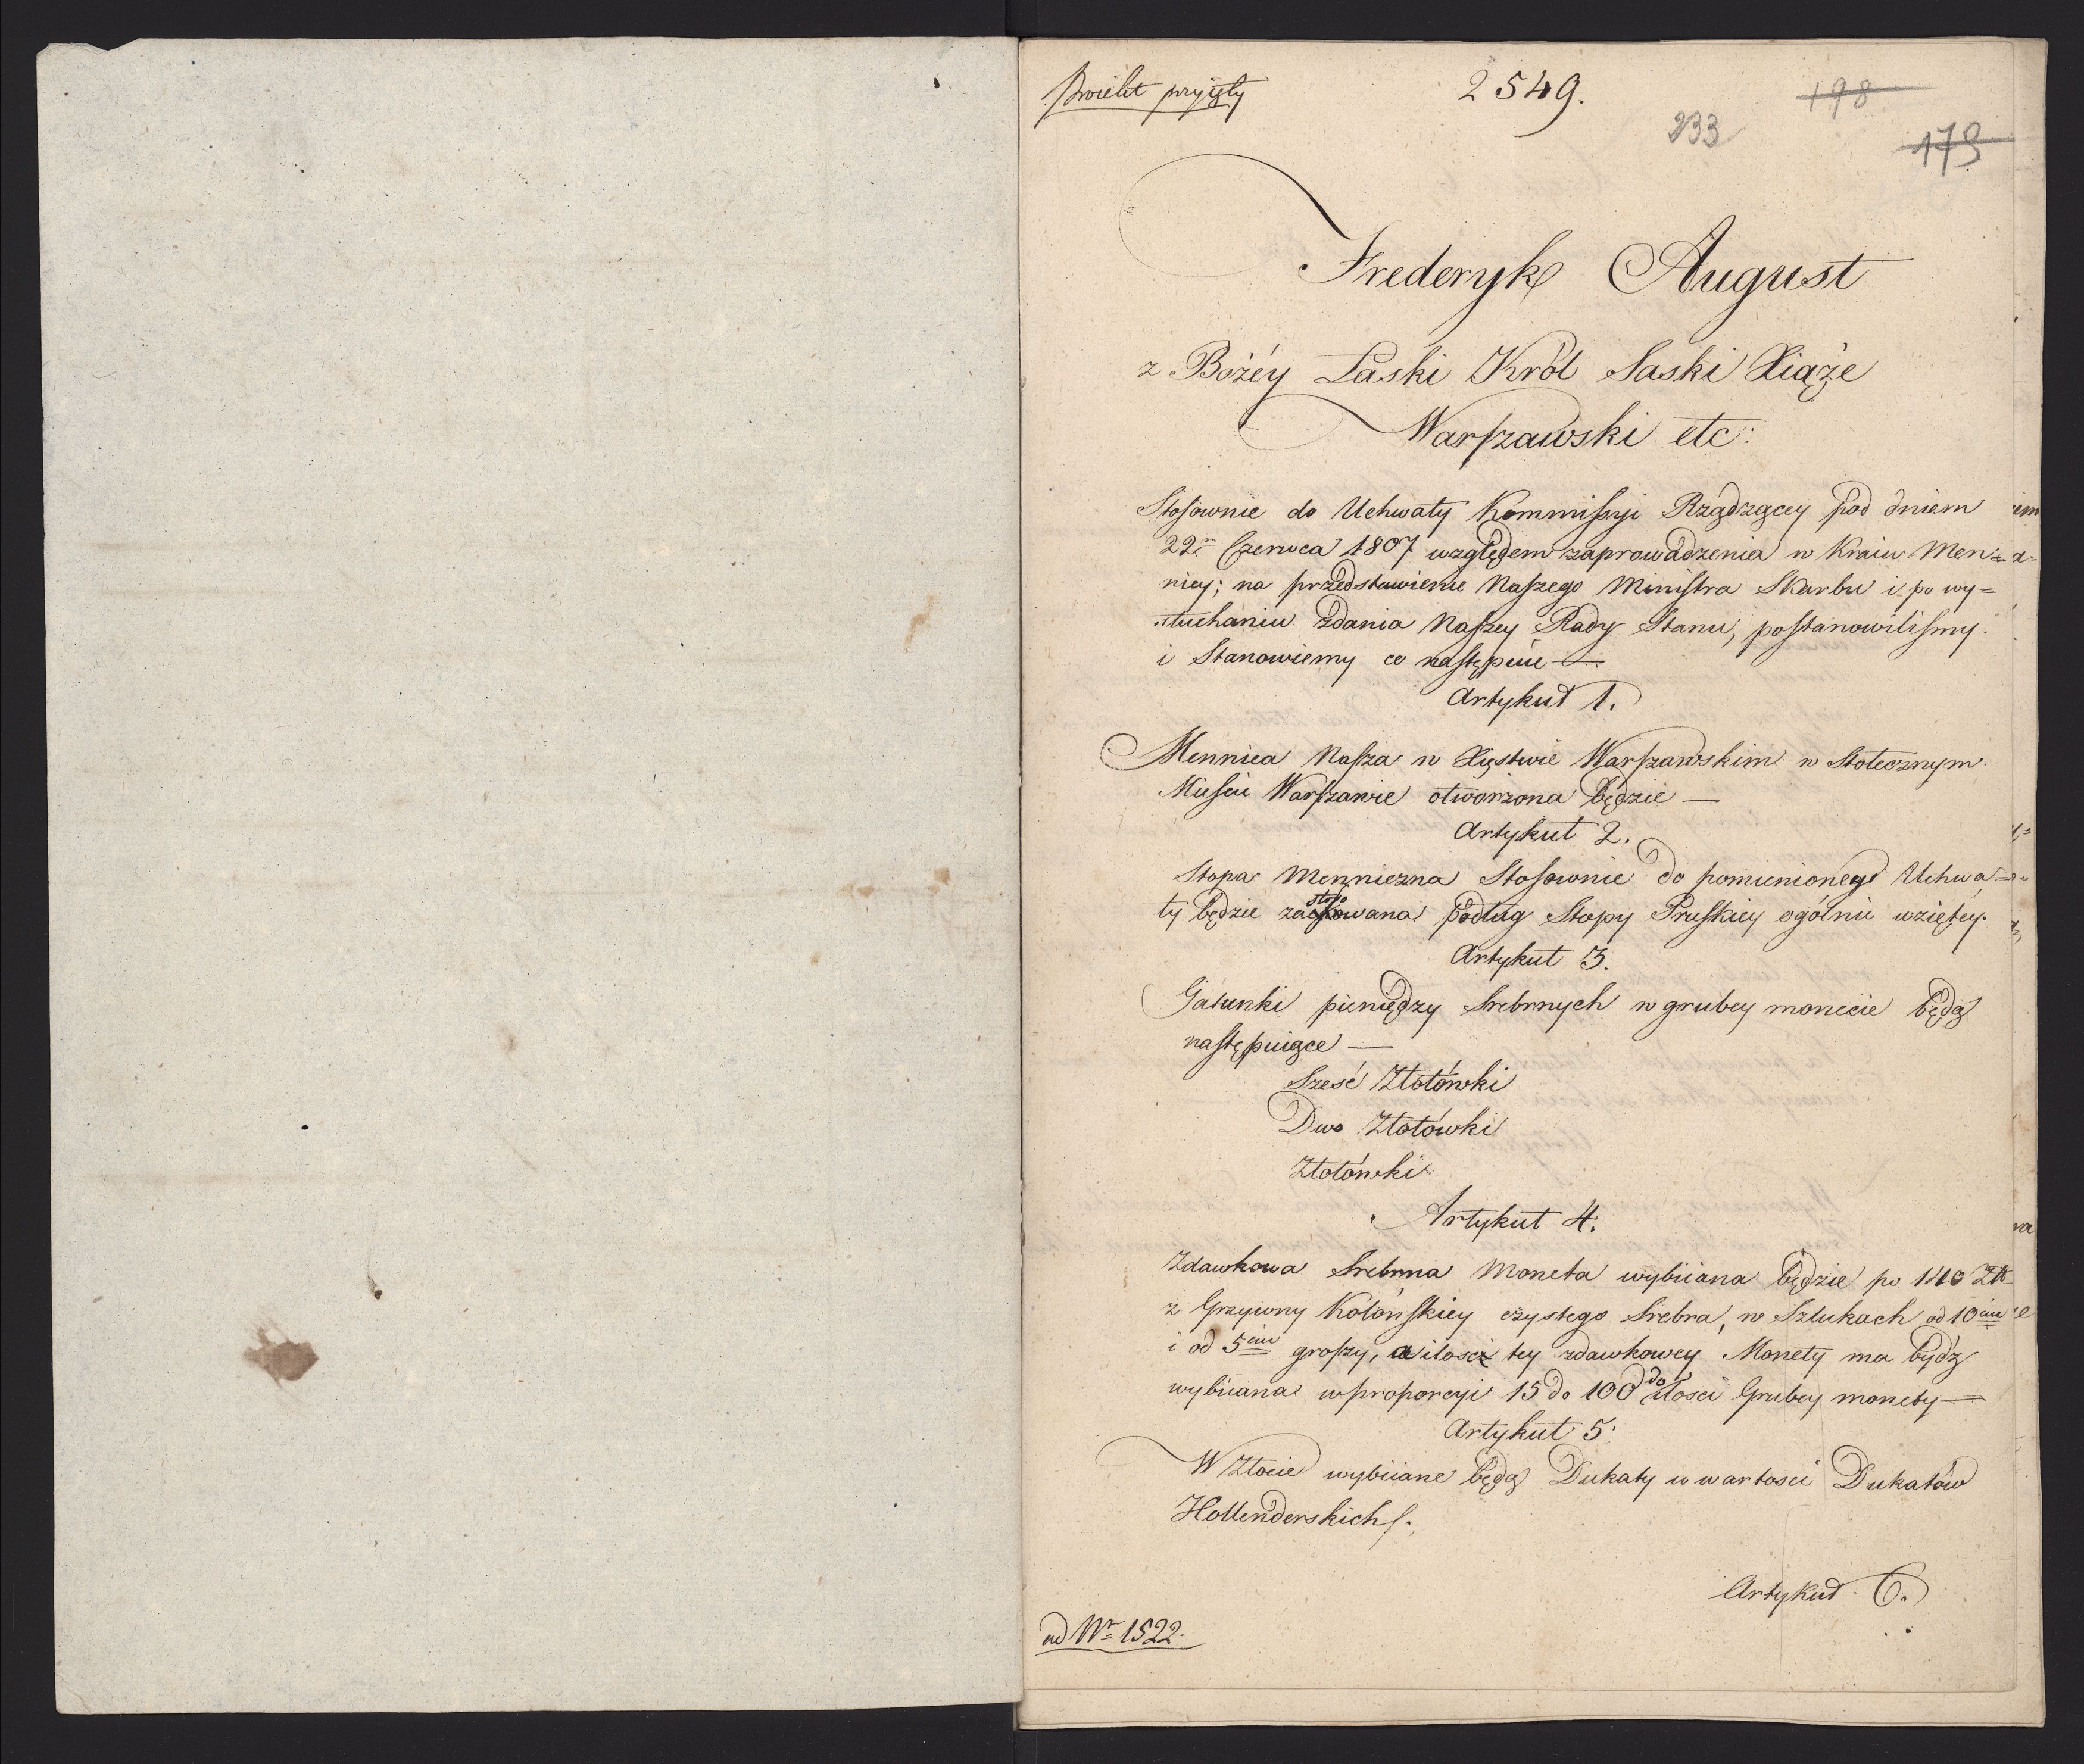 Proiekt przyięty
2549.
198
233
179
Frederyk August
z Bożéy Łaski Król Saski Xiąże
Warszawski etc:
Stosownie do Uchwały Kommissyi Rządzącey pod dniem
22. Czerwca 1807 względem zaprowadzenia w Kraiu Men=
nicy; na przedstawienie Naszego Ministra Skarbu i po wy=
słuchaniu zdania Naszey Rady Stanu, postanowiliśmy
i Stanowiemy co następuie —
Artykuł 1.
Mennica Nasza w Xięstwie Warszawskim w Stołecznym
Mieście Warszawie otworzona będzie —
Artykuł 2.
Stopa Mennicza Stosownie do pomienioney Uchwa=
ły będzie zastosowana podług Stopy Pruskiey ogólnie wziętey.
Artykuł 3.
Gatunki pieniędzy Srebrnych w grubey monecie będą
następuiące —
Sześć Złotówki
Dwa Złotówki
Złotówki
Artykuł 4.
Zdawkowa Srebrna Moneta wybiiana będzie po Zł
z Grzywny Kolońskiey czystego Srebra, w Sztukach od 10ciu
i od 5ciu groszy, a ilość tey zdawkowey Monety ma bydź
wybiiana w proporcyi 15 do 100 do ilości Grubey monety —
Artykuł 5.
W Złocie wybiiane będą Dukaty w wartości Dukatów
Hollenderskich.
Artykuł 6.
ad Nr 1522.